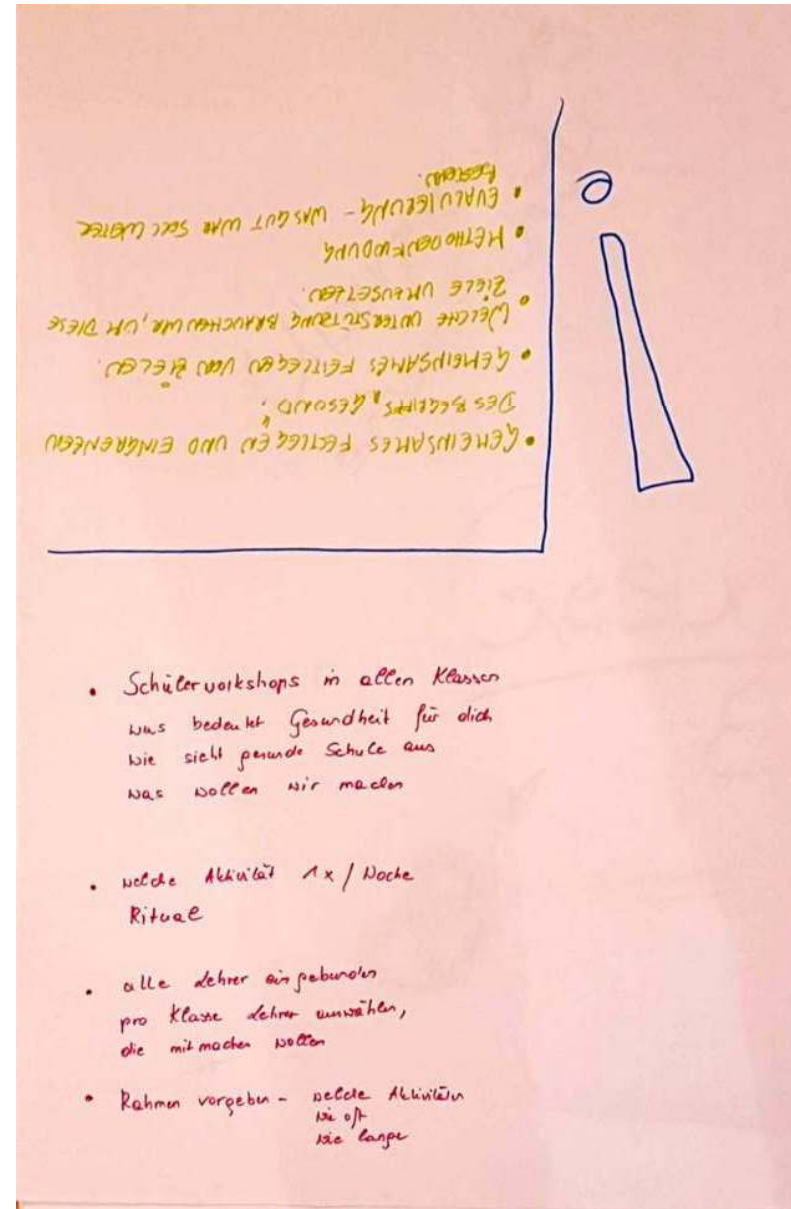 • GEMEINSAMES FESTLEGEN UND EINGRENZEN
DES BEGRIFFS „GESUND“.
• GEMEINSAMES FESTLEGEN VON ZIELEN.
• WELCHE UNTERSTÜTZUNG BRAUCHEN WIR, UM DIESE
ZIELE UMZUSETZEN.
• METHODENFINDUNG
• EVALUIERUNG - WAS GUT WAR SOLL WEITER
BESTEHEN.
• Schülerworkshops in allen Klassen
was bedeutet Gesundheit für dich
wie sieht gesunde Schule aus
was wollen wir machen
• welche Aktivität 1x / Woche
Ritual
• alle Lehrer eingebunden
pro Klasse Lehrer auswählen,
die mitmachen wollen
• Rahmen vorgeben - welche Aktivitäten
wie oft
wie lange